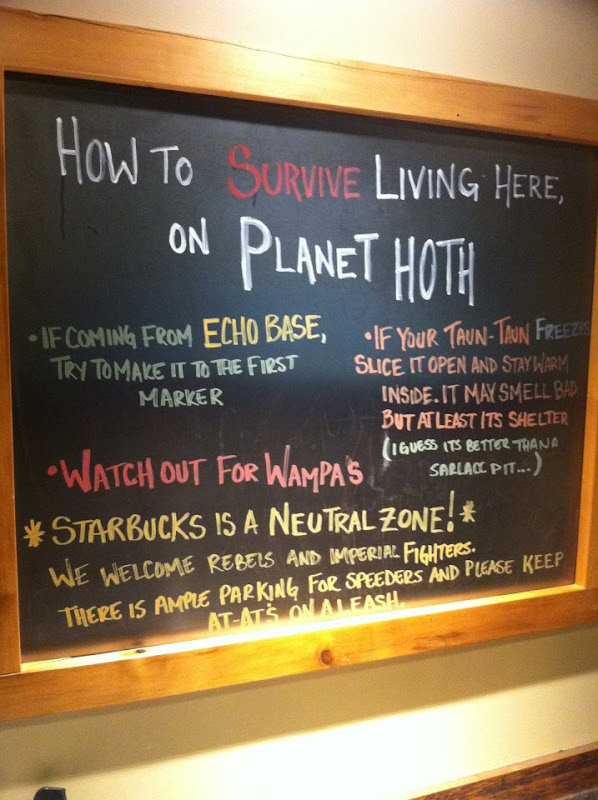 HOW TO SURVIVE LIVING HERE,
ON PLANET HOTH
• IF COMING FROM ECHO BASE,
TRY TO MAKE IT TO THE FIRST
MARKER
• IF YOUR TAUN-TAUN FREEZES
SLICE IT OPEN AND STAY WARM
INSIDE. IT MAY SMELL BAD
BUT AT LEAST ITS SHELTER
(I GUESS ITS BETTER THAN A
SARLACC PIT...)
• WATCH OUT FOR WAMPA'S
* STARBUCKS IS A NEUTRAL ZONE! *
WE WELCOME REBELS AND IMPERIAL FIGHTERS.
THERE IS AMPLE PARKING FOR SPEEDERS AND PLEASE KEEP
AT-AT'S ON A LEASH.